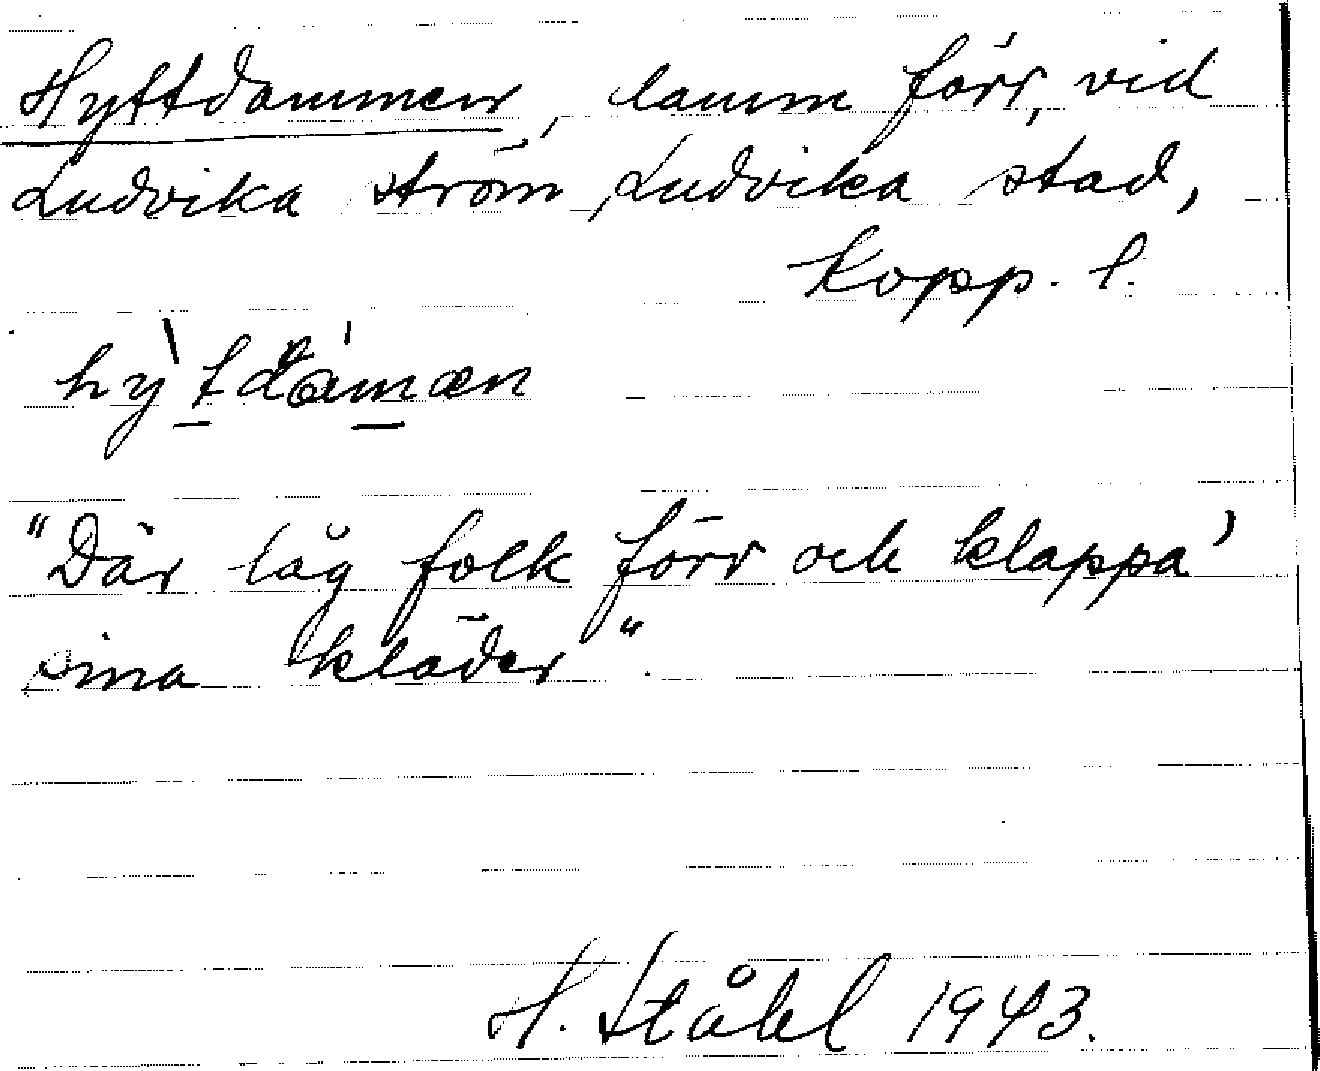 Hyttdammen, damm förr, vid
Ludvika ström, Ludvika stad,
Kopp. l.
hy̍tdåmæn
"Där låg folk förr och klappa'
sina kläder".
H. Ståhl 1943.